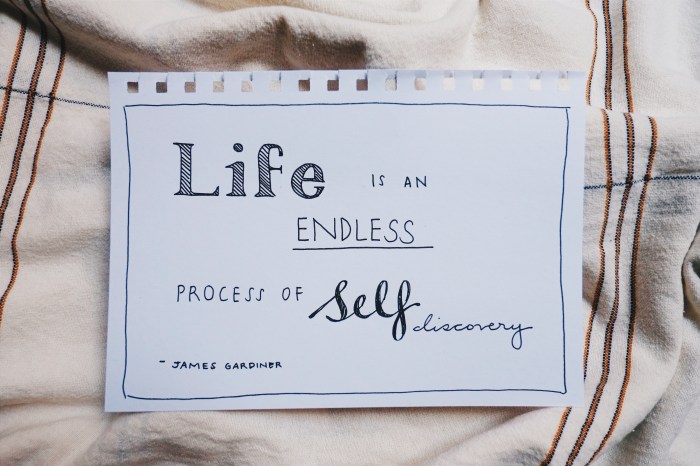 Life IS AN
ENDLESS
PROCESS OF Self discovery
- JAMES GARDINER